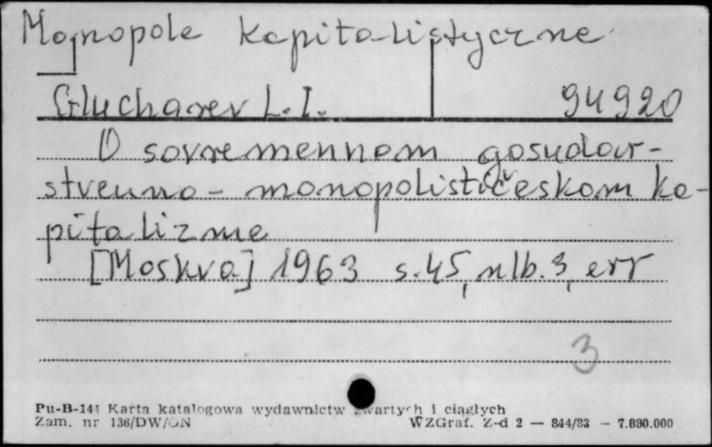 Monopole kapitalistyczne
Głucharev L. I. 94920
O sovremennom gosudar-
stvenno - monopolističeskom ka-
pitalizme
[Moskva] 1963 s. 45, nlb. 3, err
3
Pu-B-141 Karta katalogowa wydawnictw zwartych i ciągłych
Zam. nr 136/DW/ON WZGraf. Z-d 2 — 844/83 — 7.880.000